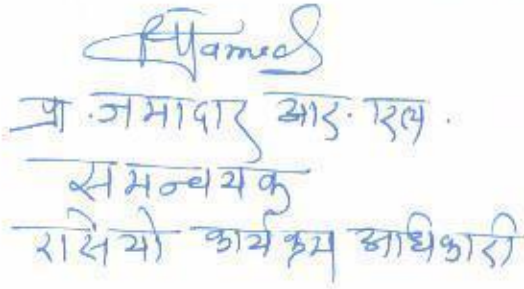 प्रा. जमादार आर. एल.
समन्वयक
रासेयो कार्यक्रम अधिकारी